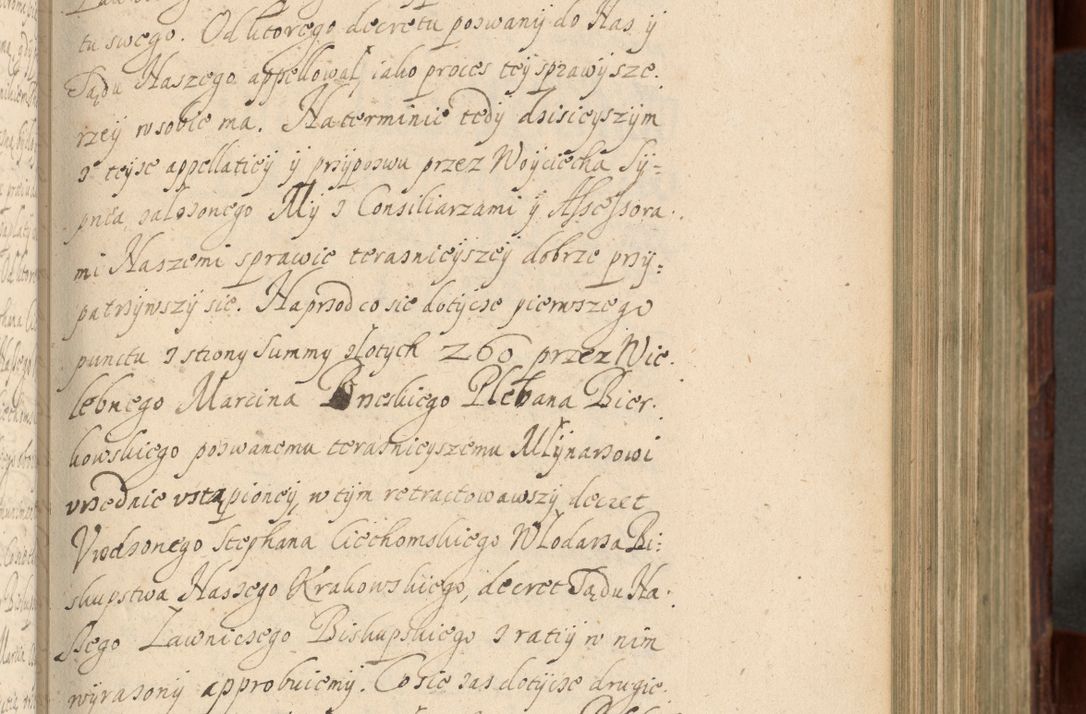 tu swego. Od ktorego decretu pozwany do Nas y
Sądu Naszego appellował iako proces tey sprawy sze.
rzey w sobie ma. Na terminie tedy dzisieyszym
z teyze appellatiey y przypozwu przez Woyciecha Sy=
pnia założonego My z Consiliarzami y Assessora.
mi Naszemi sprawie teraznieyszey dobrze przy=
patrzywszy sie. Naprzod co sie dotycze pierwszego
punctu z strony Summy złotych 260 przez Wie.
lebnego Marcina Plebana Bier.
kowskiego pozwanemu teraznieyszemu Młynarzowi
vrzednie vstąpioney, w tym retractowawszy decret
Vrodzonego Stephana Ciechomskiego Włodarza Bi:
skupstwa Naszego Krakowskiego, decret Sądu Na.
szego Ławniczego Biskupskiego z ratiy w nim
wyrazony approbuiemy. Co sie zas dotycze drugie.